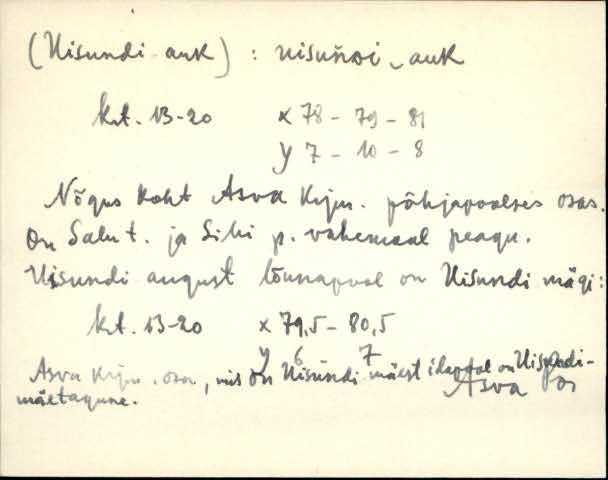 (Uisundi auk) : uisuňdi_auk
krt. 13-20 x 78 - 79 - 81
y 7 - 10 - 8
Nõgus koht Asva Krjm. põhjapoolses osas.
On Salu t. ja Sihi p. vahemaal peagu.
Uisundi august lõunapool on Uisundi mägi:
krt. 13-20 x 79,5 - 80,5
y 6 7
Asva Krjm. osa, mis on Uisundi mäest idapool on Uisundi-
mäetagune.
Asva